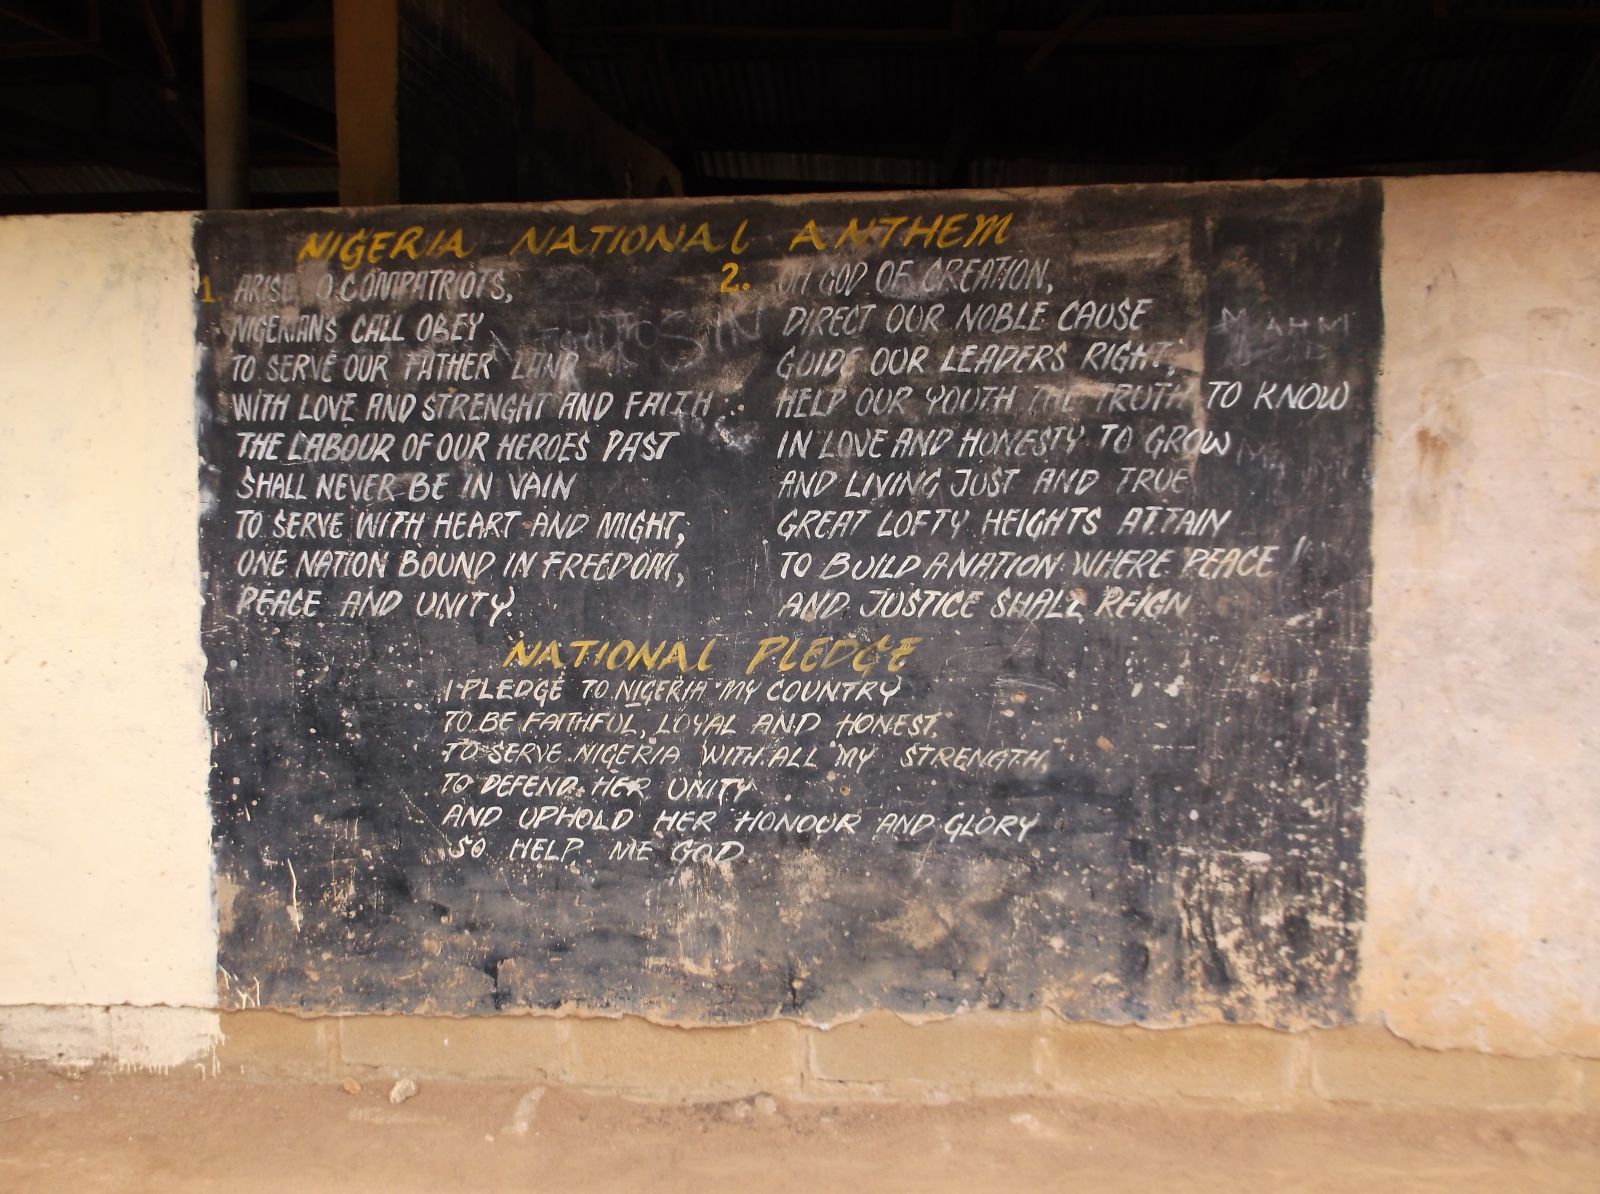 NIGERIA NATIONAL ANTHEM
1 ARISE O COMPATRIOTS,
NIGERIANS CALL OBEY
TO SERVE OUR FATHER LAND
WITH LOVE AND STRENGHT AND FAITH
THE LABOUR OF OUR HEROES PAST
SHALL NEVER BE IN VAIN
TO SERVE WITH HEART AND MIGHT,
ONE NATION BOUND IN FREEDOM,
PEACE AND UNITY.
2. OH GOD OF CREATION,
DIRECT OUR NOBLE CAUSE
GUIDE OUR LEADERS RIGHT,
HELP OUR YOUTH THE TRUTH TO KNOW
IN LOVE AND HONESTY TO GROW
AND LIVING JUST AND TRUE
GREAT LOFTY HEIGHTS ATTAIN
TO BUILD A NATION WHERE PEACE
AND JUSTICE SHALL REIGN
NATIONAL PLEDGE
I PLEDGE TO NIGERIA MY COUNTRY
TO BE FAITHFUL, LOYAL AND HONEST
TO SERVE NIGERIA WITH ALL MY STRENGTH
TO DEFEND HER UNITY
AND UPHOLD HER HONOUR AND GLORY
SO HELP ME GOD